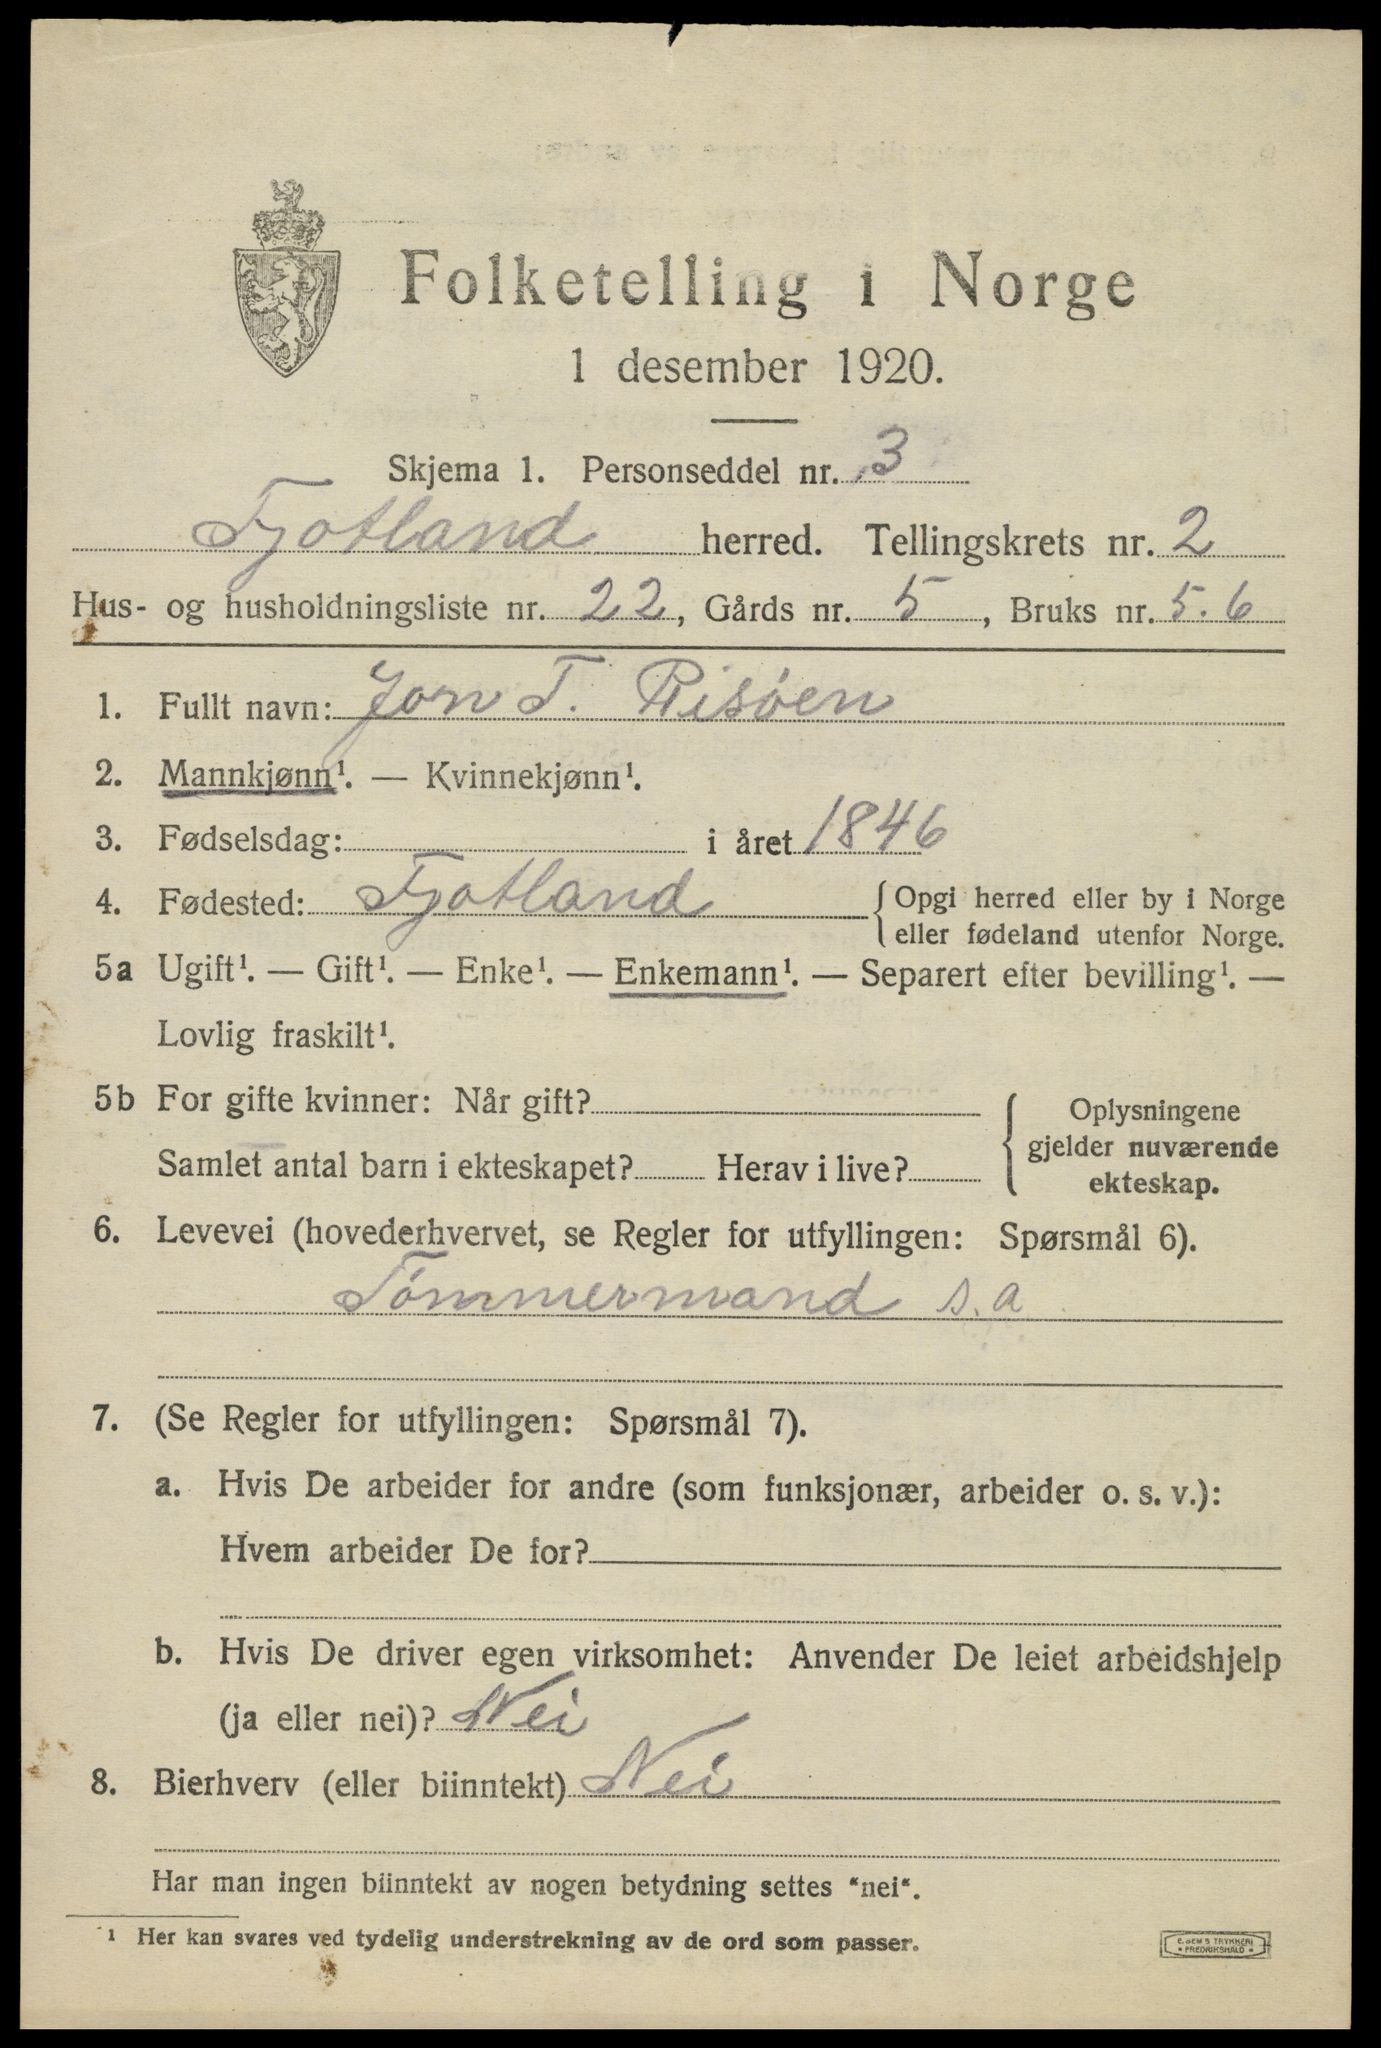 Folketelling i Norge
1 desember 1920.
Skjema 1. Personseddel nr. 3
Fjotland herred. Tellingskrets nr. 2
Hus- og husholdningsliste nr. 22, Gårds nr. 5, Bruks nr. 5.6
1. Fullt navn: Jon T. Risøen
2. Mannkjønn¹. — Kvinnekjønn¹.
3. Fødselsdag: i året 1846
4. Fødested: Fjotland {Opgi herred eller by i Norge
eller fødeland utenfor Norge.
5a Ugift¹. — Gift¹. — Enke¹. — Enkemann¹. — Separert efter bevilling¹. —
Lovlig fraskilt¹.
5b For gifte kvinner: Når gift?
Samlet antal barn i ekteskapet? Herav i live?
{Oplysningene
gjelder nuværende
ekteskap.
6. Levevei (hovederhvervet, se Regler for utfyllingen: Spørsmål 6).
Tømmermand s.a
7. (Se Regler for utfyllingen: Spørsmål 7).
a. Hvis De arbeider for andre (som funksjonær, arbeider o. s. v.):
Hvem arbeider De for?
b. Hvis De driver egen virksomhet: Anvender De leiet arbeidshjelp
(ja eller nei)? Nei
8. Bierhverv (eller biinntekt) Nei
Har man ingen biinntekt av nogen betydning settes "nei".
¹ Her kan svares ved tydelig understrekning av de ord som passer.
E. SEM'S TRYKKERI
• FREDRIKSHALD •